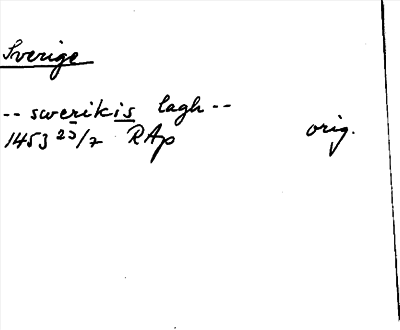 Sverige
-- swerikis lagh --
1453 23/7 RAp orig.